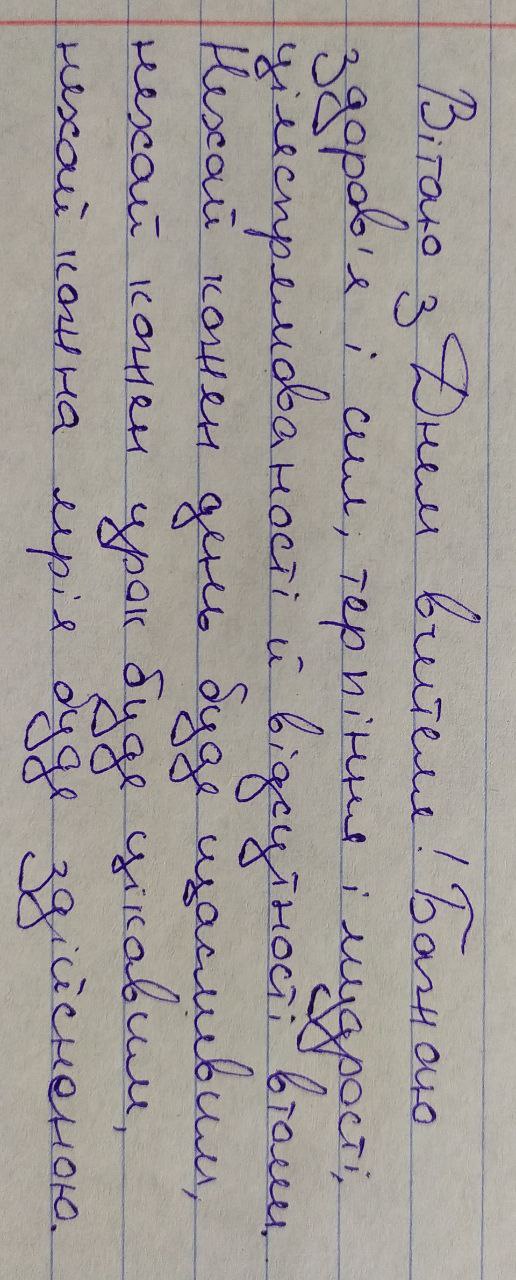 Вітаю з Днем вчителя! Бажаю
здоров'я і сил, терпіння і мудрості,
цілеспрямованості й відсутності втоми.
Нехай кожен день буде щасливим,
нехай кожен урок буде цікавим,
нехай кожна мрія буде здійсненою.